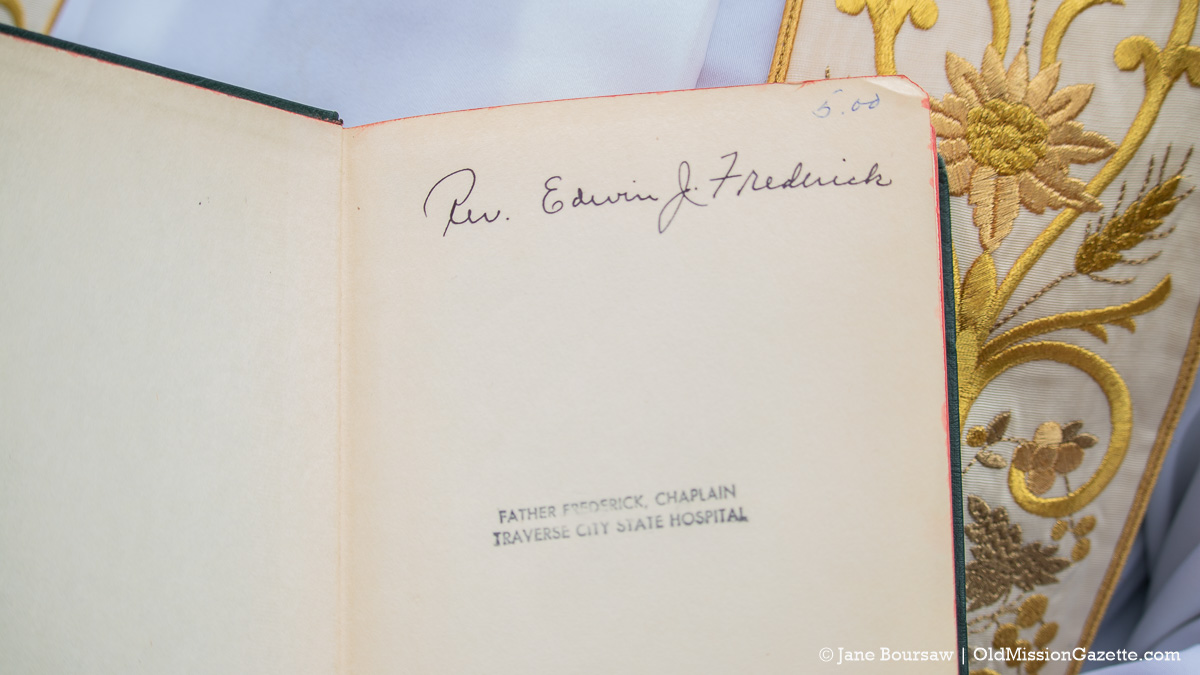 5.00
Rev. Edwin J. Frederick
FATHER FREDERICK, CHAPLAIN
TRAVERSE CITY STATE HOSPITAL
© Jane Boursaw | OldMissionGazette.com